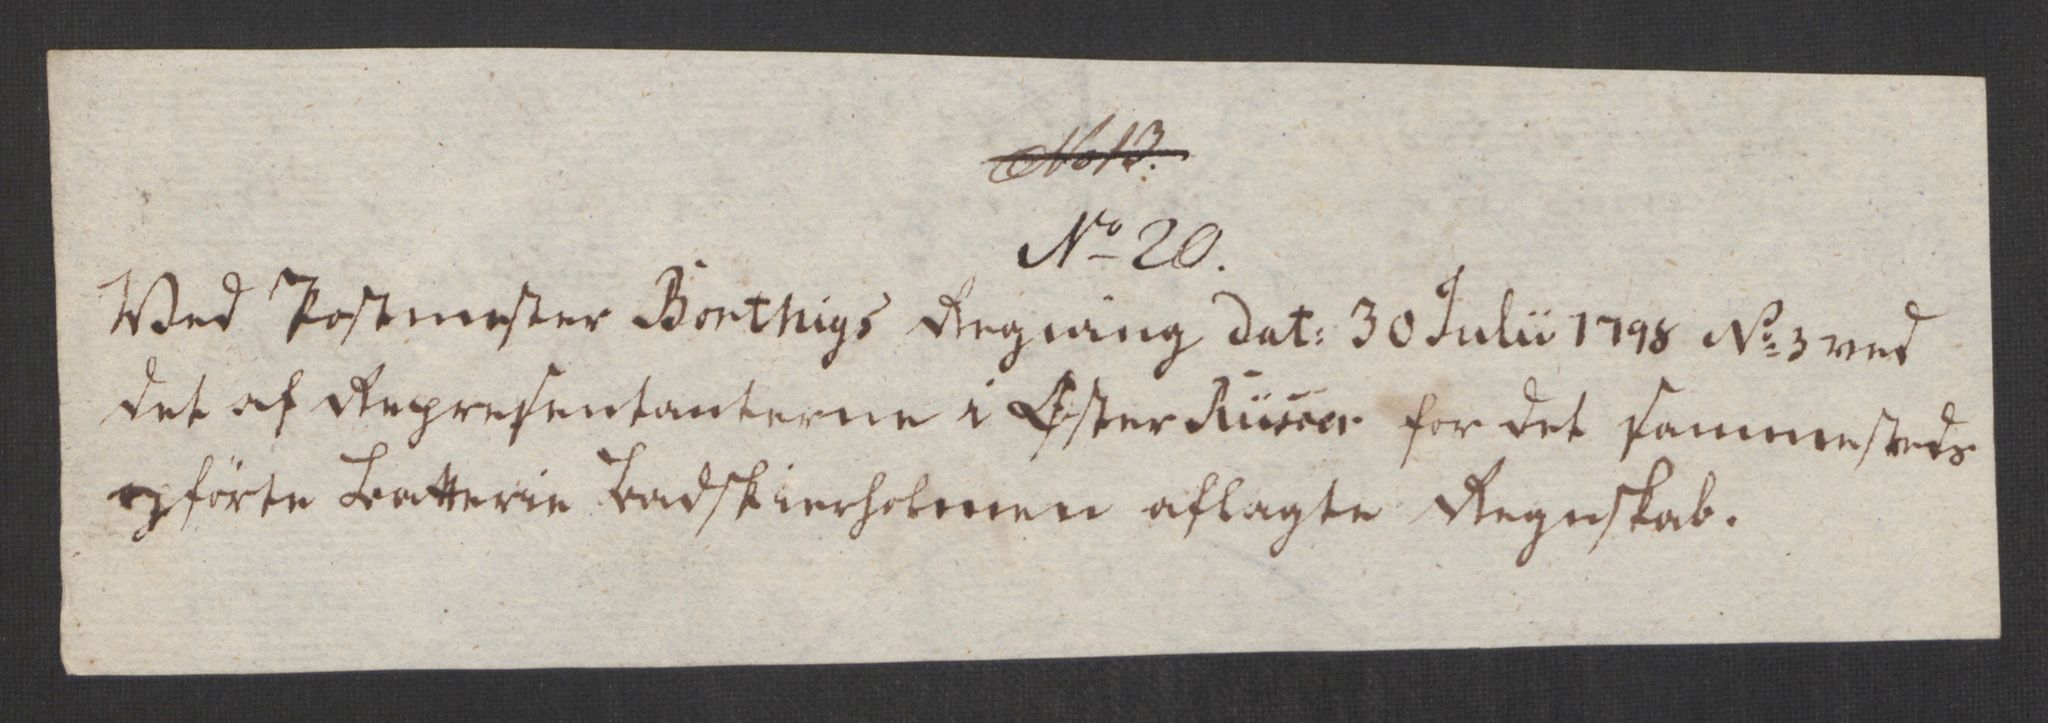 No 13.
No 20.
Ved Postmester Boethigs Regning dat: 30 Julii 1798 No 3 ved
det af Representanterne i Öster Riisöer for det sammesteds
opförte Batterie Badskierholmen aflagte Regnskab.